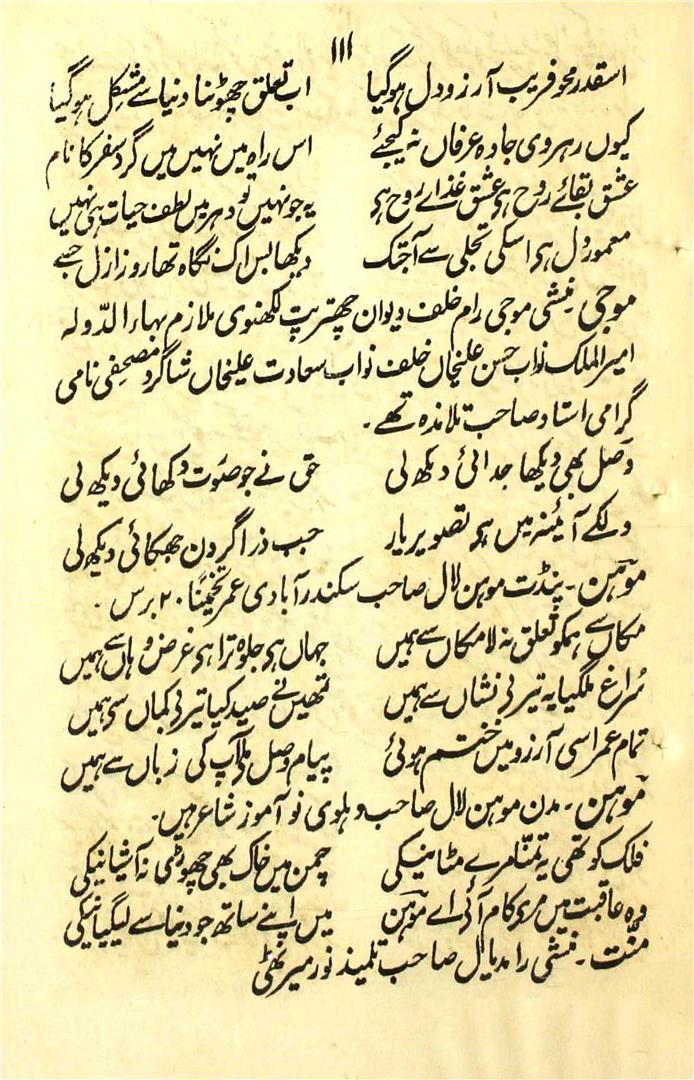 ۱۱۱
اسقدر محو فریب آرزو دل ہوگیا اب تعلق چھوڑنا دنیا سے مشکل ہوگیا
کیوں رہروی جادہ عرفاں نہ کیجئے اس راہ میں نہیں میں گرد سفر کا نام
عشق بقائے روح ہی عشق غذاے روح ہی یہ جو نہیں تو دہر میں لطف حیات ہی نہیں
معمور دل ہی اسکی تجلی سے آجتک دیکھا بس اک نگاہ تھا روز ازل جسے
موجی ۔ منشی موجی رام خلف دیوان چھترپت لکھنوی ملازم بہاء الدولہ
امیر الملک نواب حسن علیخاں خلف نواب سعادت علیخاں شاگرد مصحفی نامی
گرامی استاد صاحب تلامذہ تھے ۔
وصل بھی دیکھا جدائی دیکھ لی حق نے جو صورت دکھائی دیکھ لی
دلکے آئینہ میں ہی تصویر یار جب ذرا گردن جھکائی دیکھ لی
موہن ۔ پنڈت موہن لال صاحب سکندرآبادی عمر تخمیناً ۲۰ برس ۔
مکاں سے ہمکو تعلق نہ لامکاں سے ہمیں جہاں ہی جلوہ ترا ہی غرض وہاں سے ہمیں
سُراغ ملگیا یہ تیر بے نشاں سے ہمیں تمھیں نے صید کیا تیر بے کماں سی ہمیں
تمام عمر اسی آرزو میں ختم ہوئی پیام وصل ملے آپ کی زباں سے ہمیں
موہن ۔ مدن موہن لال صاحب دہلوی نو آموز شاعر ہیں ۔
فلک کو تھی یہ تمنّا مرے مٹانیکی چمن میں خاک بھی چھوڑی نہ آشیانیکی
وہ عاقبت میں مری کام آئی اے موہن میں اپنے ساتھ جو دنیا سے لیگیا نیکی
منّت ۔ منشی رامدیال صاحب تلمیذ نور میرٹھی